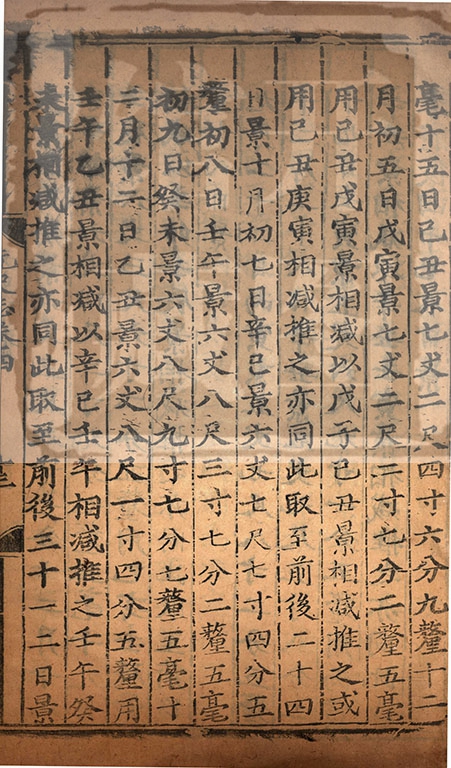 毫十五日己丑景七丈二尺四寸六分九釐十二
月初五日戊寅景七丈二尺二寸七分二釐五毫
用己丑戊寅景相減以戊子己丑景相減推之或
用己丑庚寅相減推之亦同此取至前後二十四
日景十月初七日辛巳景六丈七尺七寸四分五
釐初八日壬午景六丈八尺三寸七分二釐五毫
初九日癸未景六丈八尺九寸七分七釐五毫十
二月十二日乙丑景六丈八尺一寸四分五釐用
壬午乙丑景相減以辛巳壬午相減推之壬午癸
未景相減推之亦同此取至前後三十一二日景
志卷四